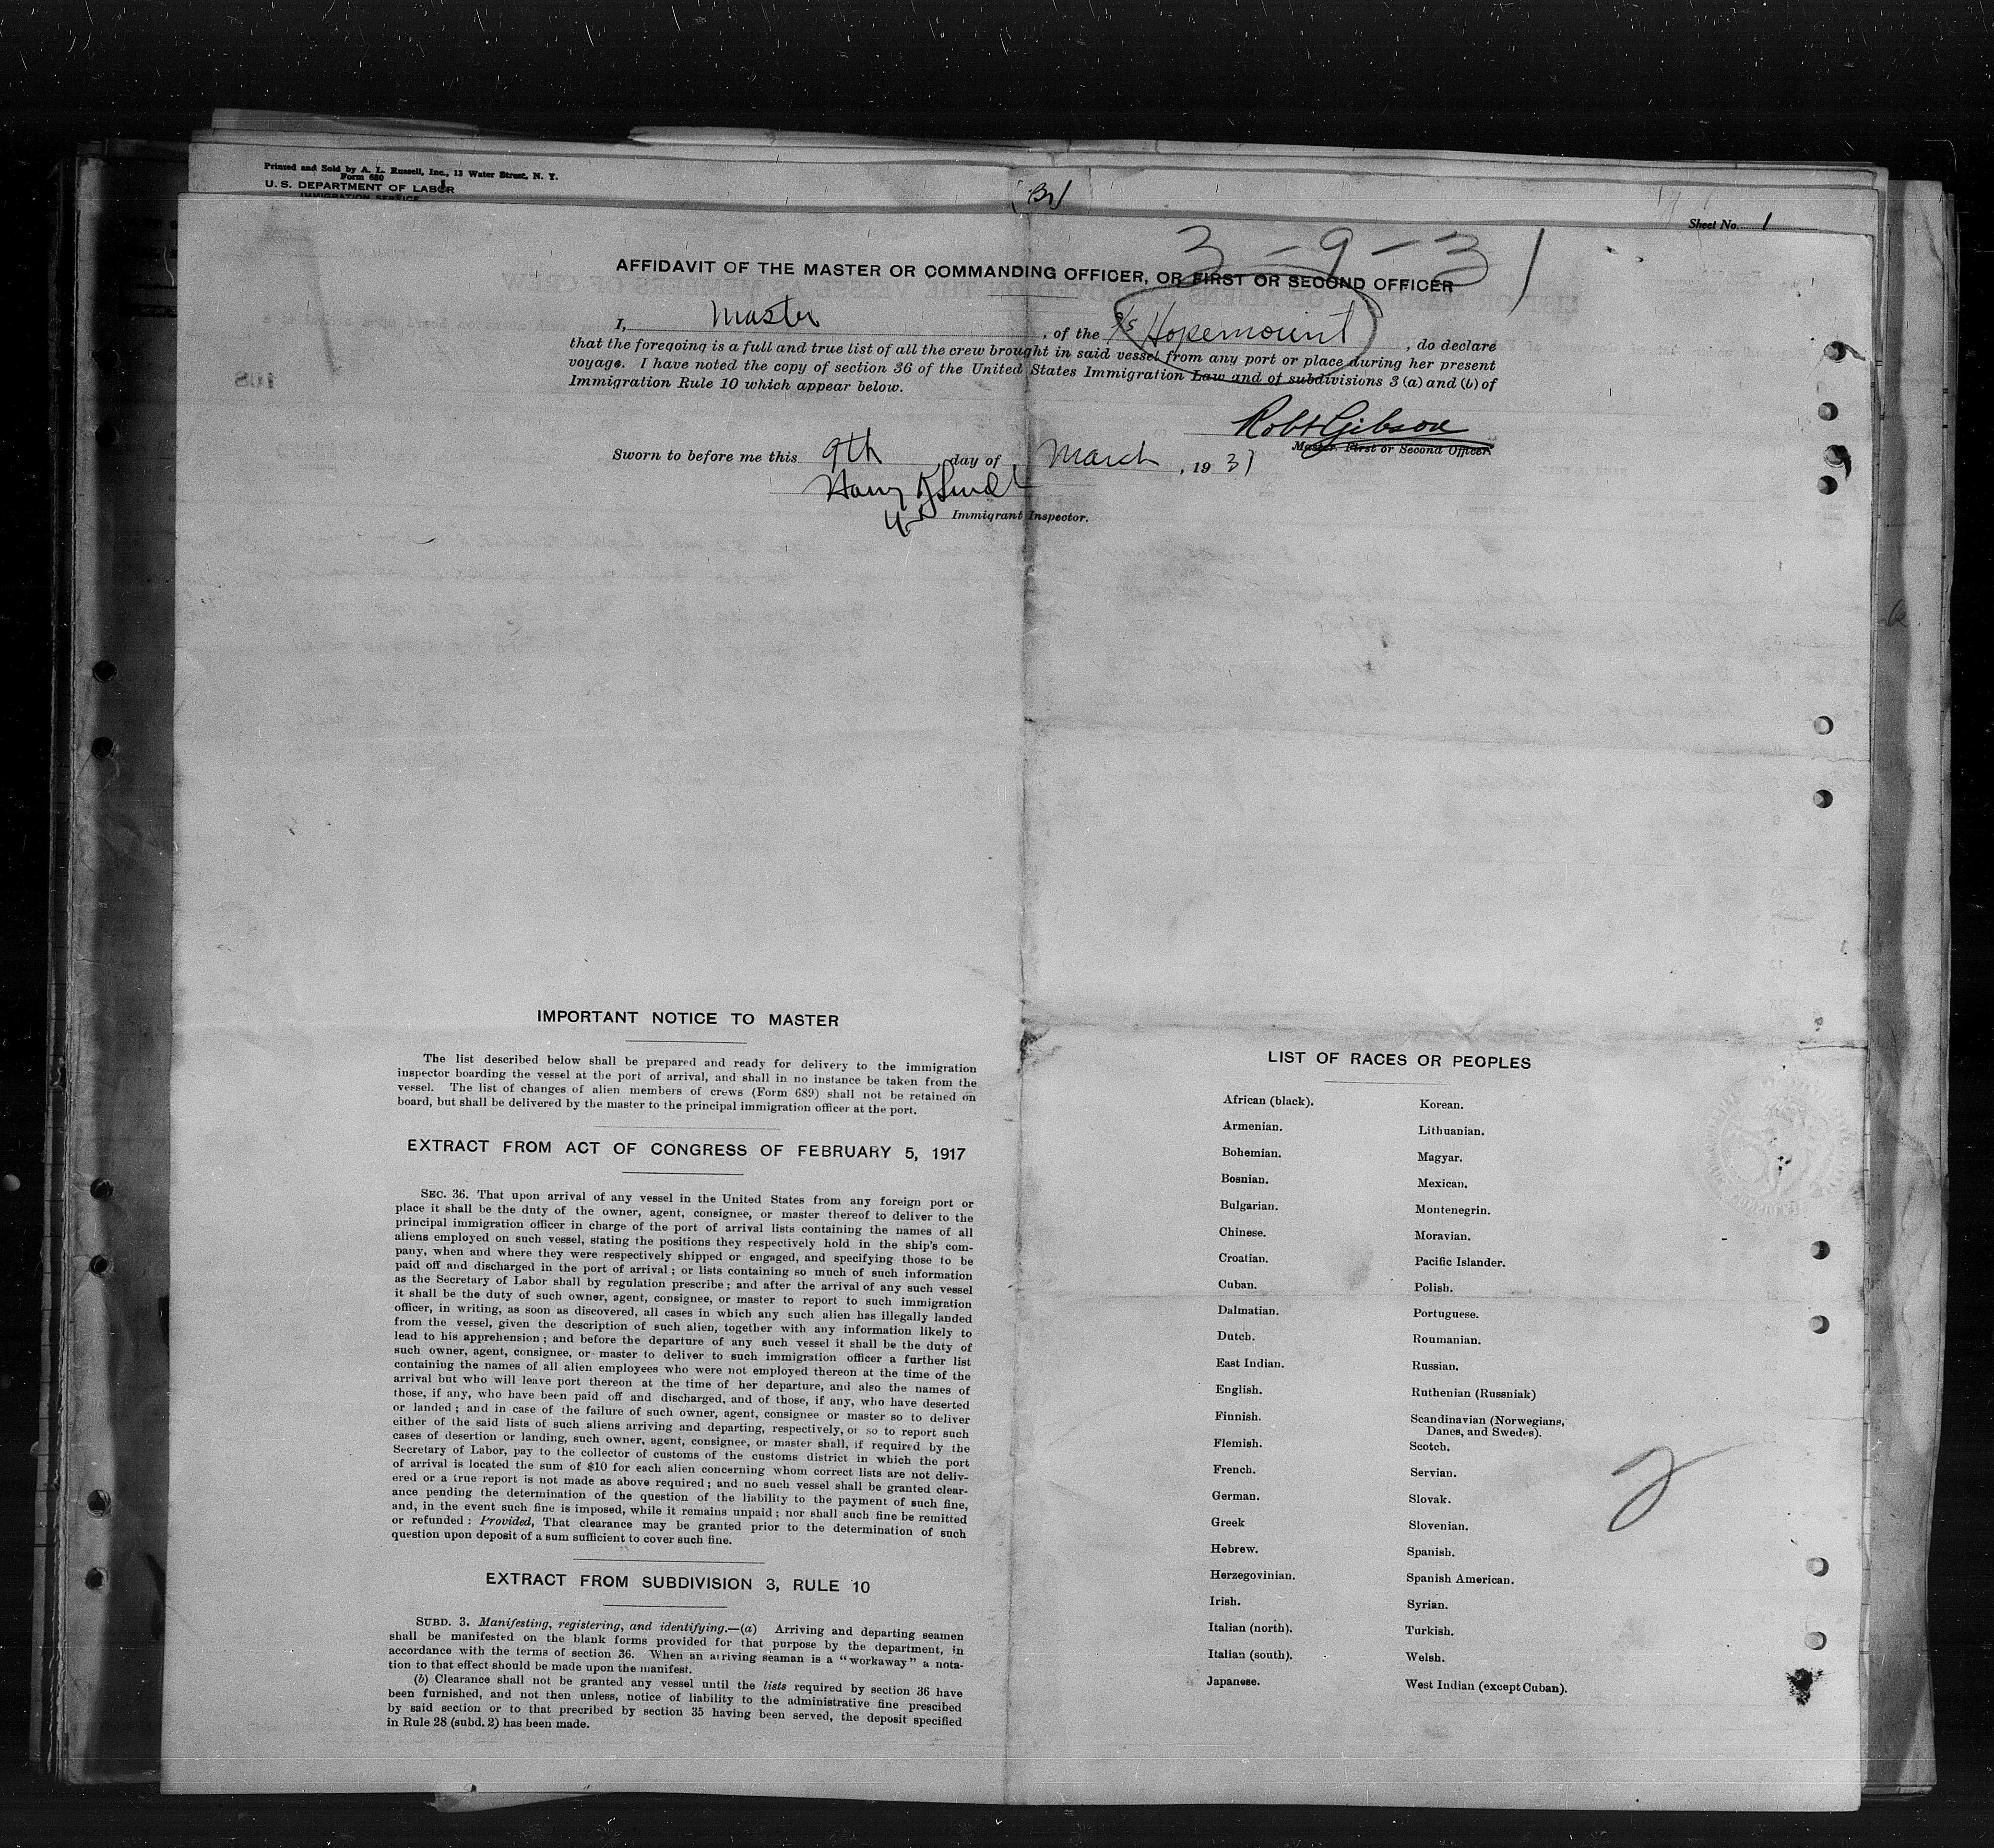 Printed and Sold by A. L. Russell, Inc., 13 Water Street, N. Y.
Form 680
U. S. DEPARTMENT OF LABOR
IMMIGRATION SERVICE
Sheet No. 1
3 - 9 - 31
AFFIDAVIT OF THE MASTER OR COMMANDING OFFICER, OR FIRST OR SECOND OFFICER
I, Master, of the S/S Hopemount, do declare
that the foregoing is a full and true list of all the crew brought in said vessel from any port or place during her present
voyage. I have noted the copy of section 36 of the United States Immigration Law and of subdivisions 3 (a) and (b) of
Immigration Rule 10 which appear below.
Robt Gibson
Master First or Second Officer.
Sworn to before me this 9th day of March, 1931
Harry
Immigrant Inspector.
IMPORTANT NOTICE TO MASTER
The list described below shall be prepared and ready for delivery to the immigration
inspector boarding the vessel at the port of arrival, and shall in no instance be taken from the
vessel. The list of changes of alien members of crews (Form 689) shall not be retained on
board, but shall be delivered by the master to the principal immigration officer at the port.
EXTRACT FROM ACT OF CONGRESS OF FEBRUARY 5, 1917
SEC. 36. That upon arrival of any vessel in the United States from any foreign port or
place it shall be the duty of the owner, agent, consignee, or master thereof to deliver to the
principal immigration officer in charge of the port of arrival lists containing the names of all
aliens employed on such vessel, stating the positions they respectively hold in the ship's com-
pany, when and where they were respectively shipped or engaged, and specifying those to be
paid off and discharged in the port of arrival; or lists containing so much of such information
as the Secretary of Labor shall by regulation prescribe; and after the arrival of any such vessel
it shall be the duty of such owner, agent, consignee, or master to report to such immigration
officer, in writing, as soon as discovered, all cases in which any such alien has illegally landed
from the vessel, given the description of such alien, together with any information likely to
lead to his apprehension; and before the departure of any such vessel it shall be the duty of
such owner, agent, consignee, or master to deliver to such immigration officer a further list
containing the names of all alien employees who were not employed thereon at the time of the
arrival but who will leave port thereon at the time of her departure, and also the names of
those, if any, who have been paid off and discharged, and of those, if any, who have deserted
or landed; and in case of the failure of such owner, agent, consignee or master so to deliver
either of the said lists of such aliens arriving and departing, respectively, or so to report such
cases of desertion or landing, such owner, agent, consignee, or master shall, if required by the
Secretary of Labor, pay to the collector of customs of the customs district in which the port
of arrival is located the sum of $10 for each alien concerning whom correct lists are not deliv-
ered or a true report is not made as above required; and no such vessel shall be granted clear-
ance pending the determination of the question of the liability to the payment of such fine,
and, in the event such fine is imposed, while it remains unpaid; nor shall such fine be remitted
or refunded: Provided, That clearance may be granted prior to the determination of such
question upon deposit of a sum sufficient to cover such fine.
EXTRACT FROM SUBDIVISION 3, RULE 10
SUBD. 3. Manifesting, registering, and identifying.—(a) Arriving and departing seamen
shall be manifested on the blank forms provided for that purpose by the department, in
accordance with the terms of section 36. When an arriving seaman is a "workaway" a nota-
tion to that effect should be made upon the manifest.
(b) Clearance shall not be granted any vessel until the lists required by section 36 have
been furnished, and not then unless, notice of liability to the administrative fine prescibed
by said section or to that precribed by section 35 having been served, the deposit specified
in Rule 28 (subd. 2) has been made.
LIST OF RACES OR PEOPLES
African (black).
Armenian.
Bohemian.
Bosnian.
Bulgarian.
Chinese.
Croatian.
Cuban.
Dalmatian.
Dutch.
East Indian.
English.
Finnish.
Flemish.
French.
German.
Greek
Hebrew.
Herzegovinian.
Irish.
Italian (north).
Italian (south).
Japanese.
Korean.
Lithuanian.
Magyar.
Mexican.
Montenegrin.
Moravian.
Pacific Islander.
Polish.
Portuguese.
Roumanian.
Russian.
Ruthenian (Russniak)
Scandinavian (Norwegians,
Danes, and Swedes).
Scotch.
Servian.
Slovak.
Slovenian.
Spanish.
Spanish American.
Syrian.
Turkish.
Welsh.
West Indian (except Cuban).
2